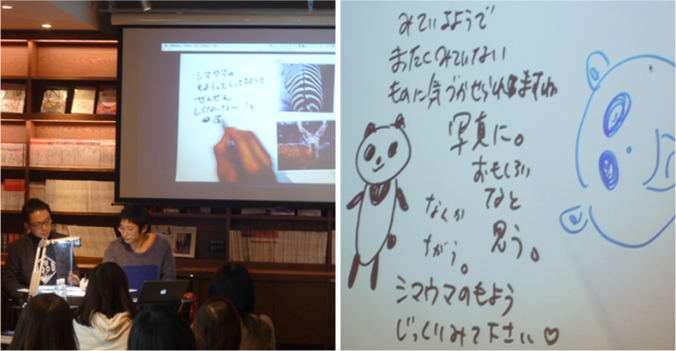 シマウマの
もようってこってるようで
ぜんぜん
しらないなーと
みているようで
またくみていない
ものに気づかせられますね
写真に。
おもしろい
なと
思う。
なにか
ちがう。
シマウマのもよう
じっくりみて下さい♡